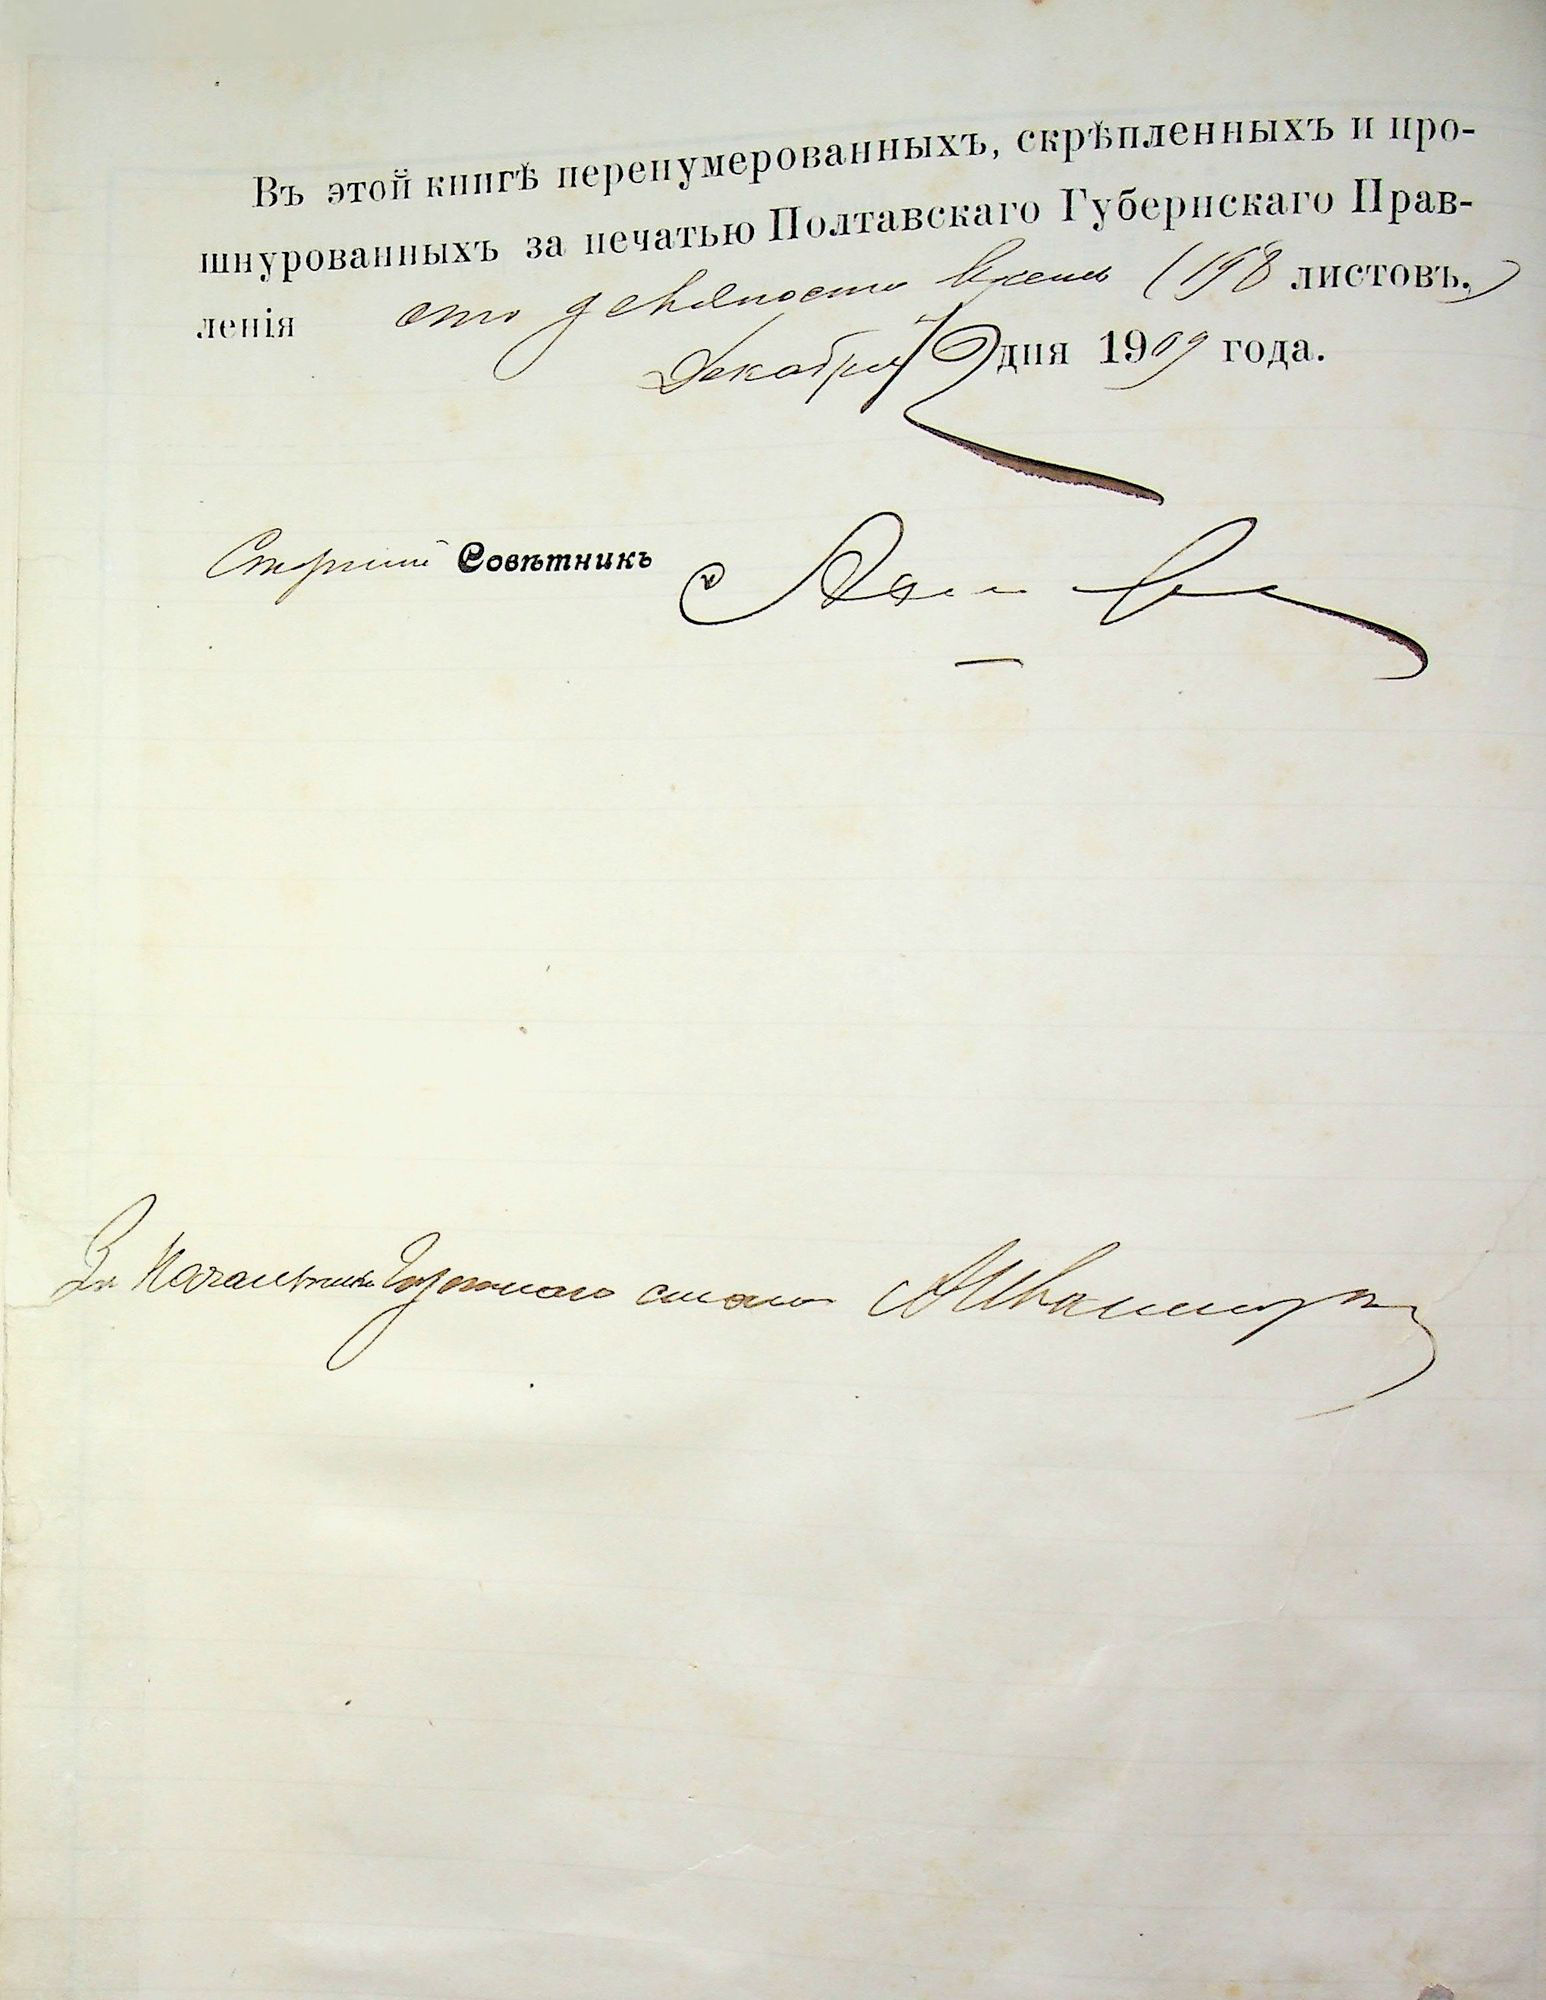 Въ этой книгѣ перенумерованныхъ, скрѣпленныхъ и про-
шнурованныхъ за печатью Полтавскаго Губернскаго Прав-
ленія сто девяносто восемь (198 листовъ.)
Декабря дня 1909 года.
Старшій Совѣтникъ
За Начальника стола